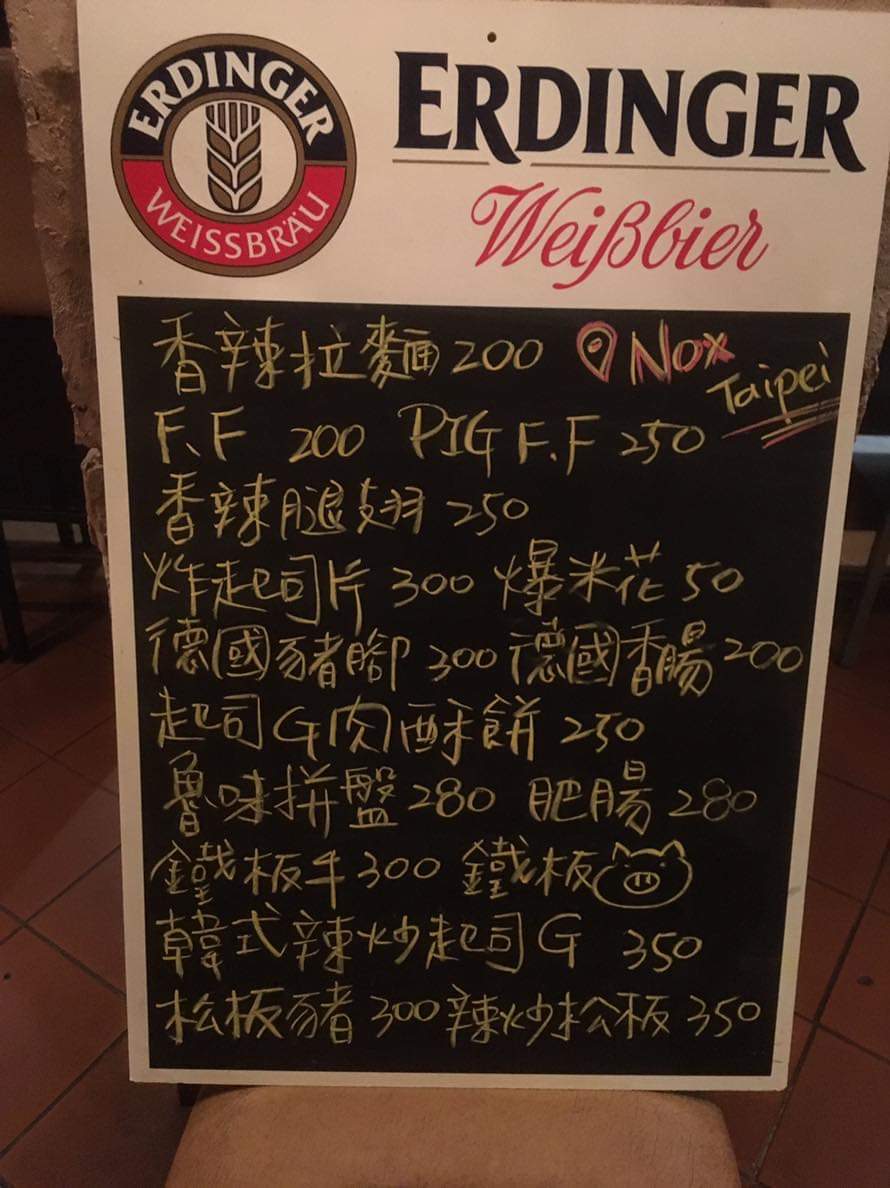 ERDINGER
WEISSBRÄU
ERDINGER
Weißbier
香辣拉麵200 Nox
Taipei
F.F 200 PIG F.F 250
香辣腿翅 250
炸起司片 300 爆米花 50
德國豬腳 300 德國香腸 200
起司G肉酥餅 250
魯味拼盤 280 肥腸 280
鐵板牛 300 鐵板
韓式辣炒起司G 350
松板豬 300 辣炒松板 350